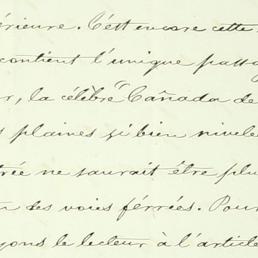 érieure. C'est encore cette
contient l'unique passa
r, la célèbre Cañada de
s plaines si bien nivelé
trée ne saurait être plu
n des voies férrées. Pou
yons le lecteur à l'article